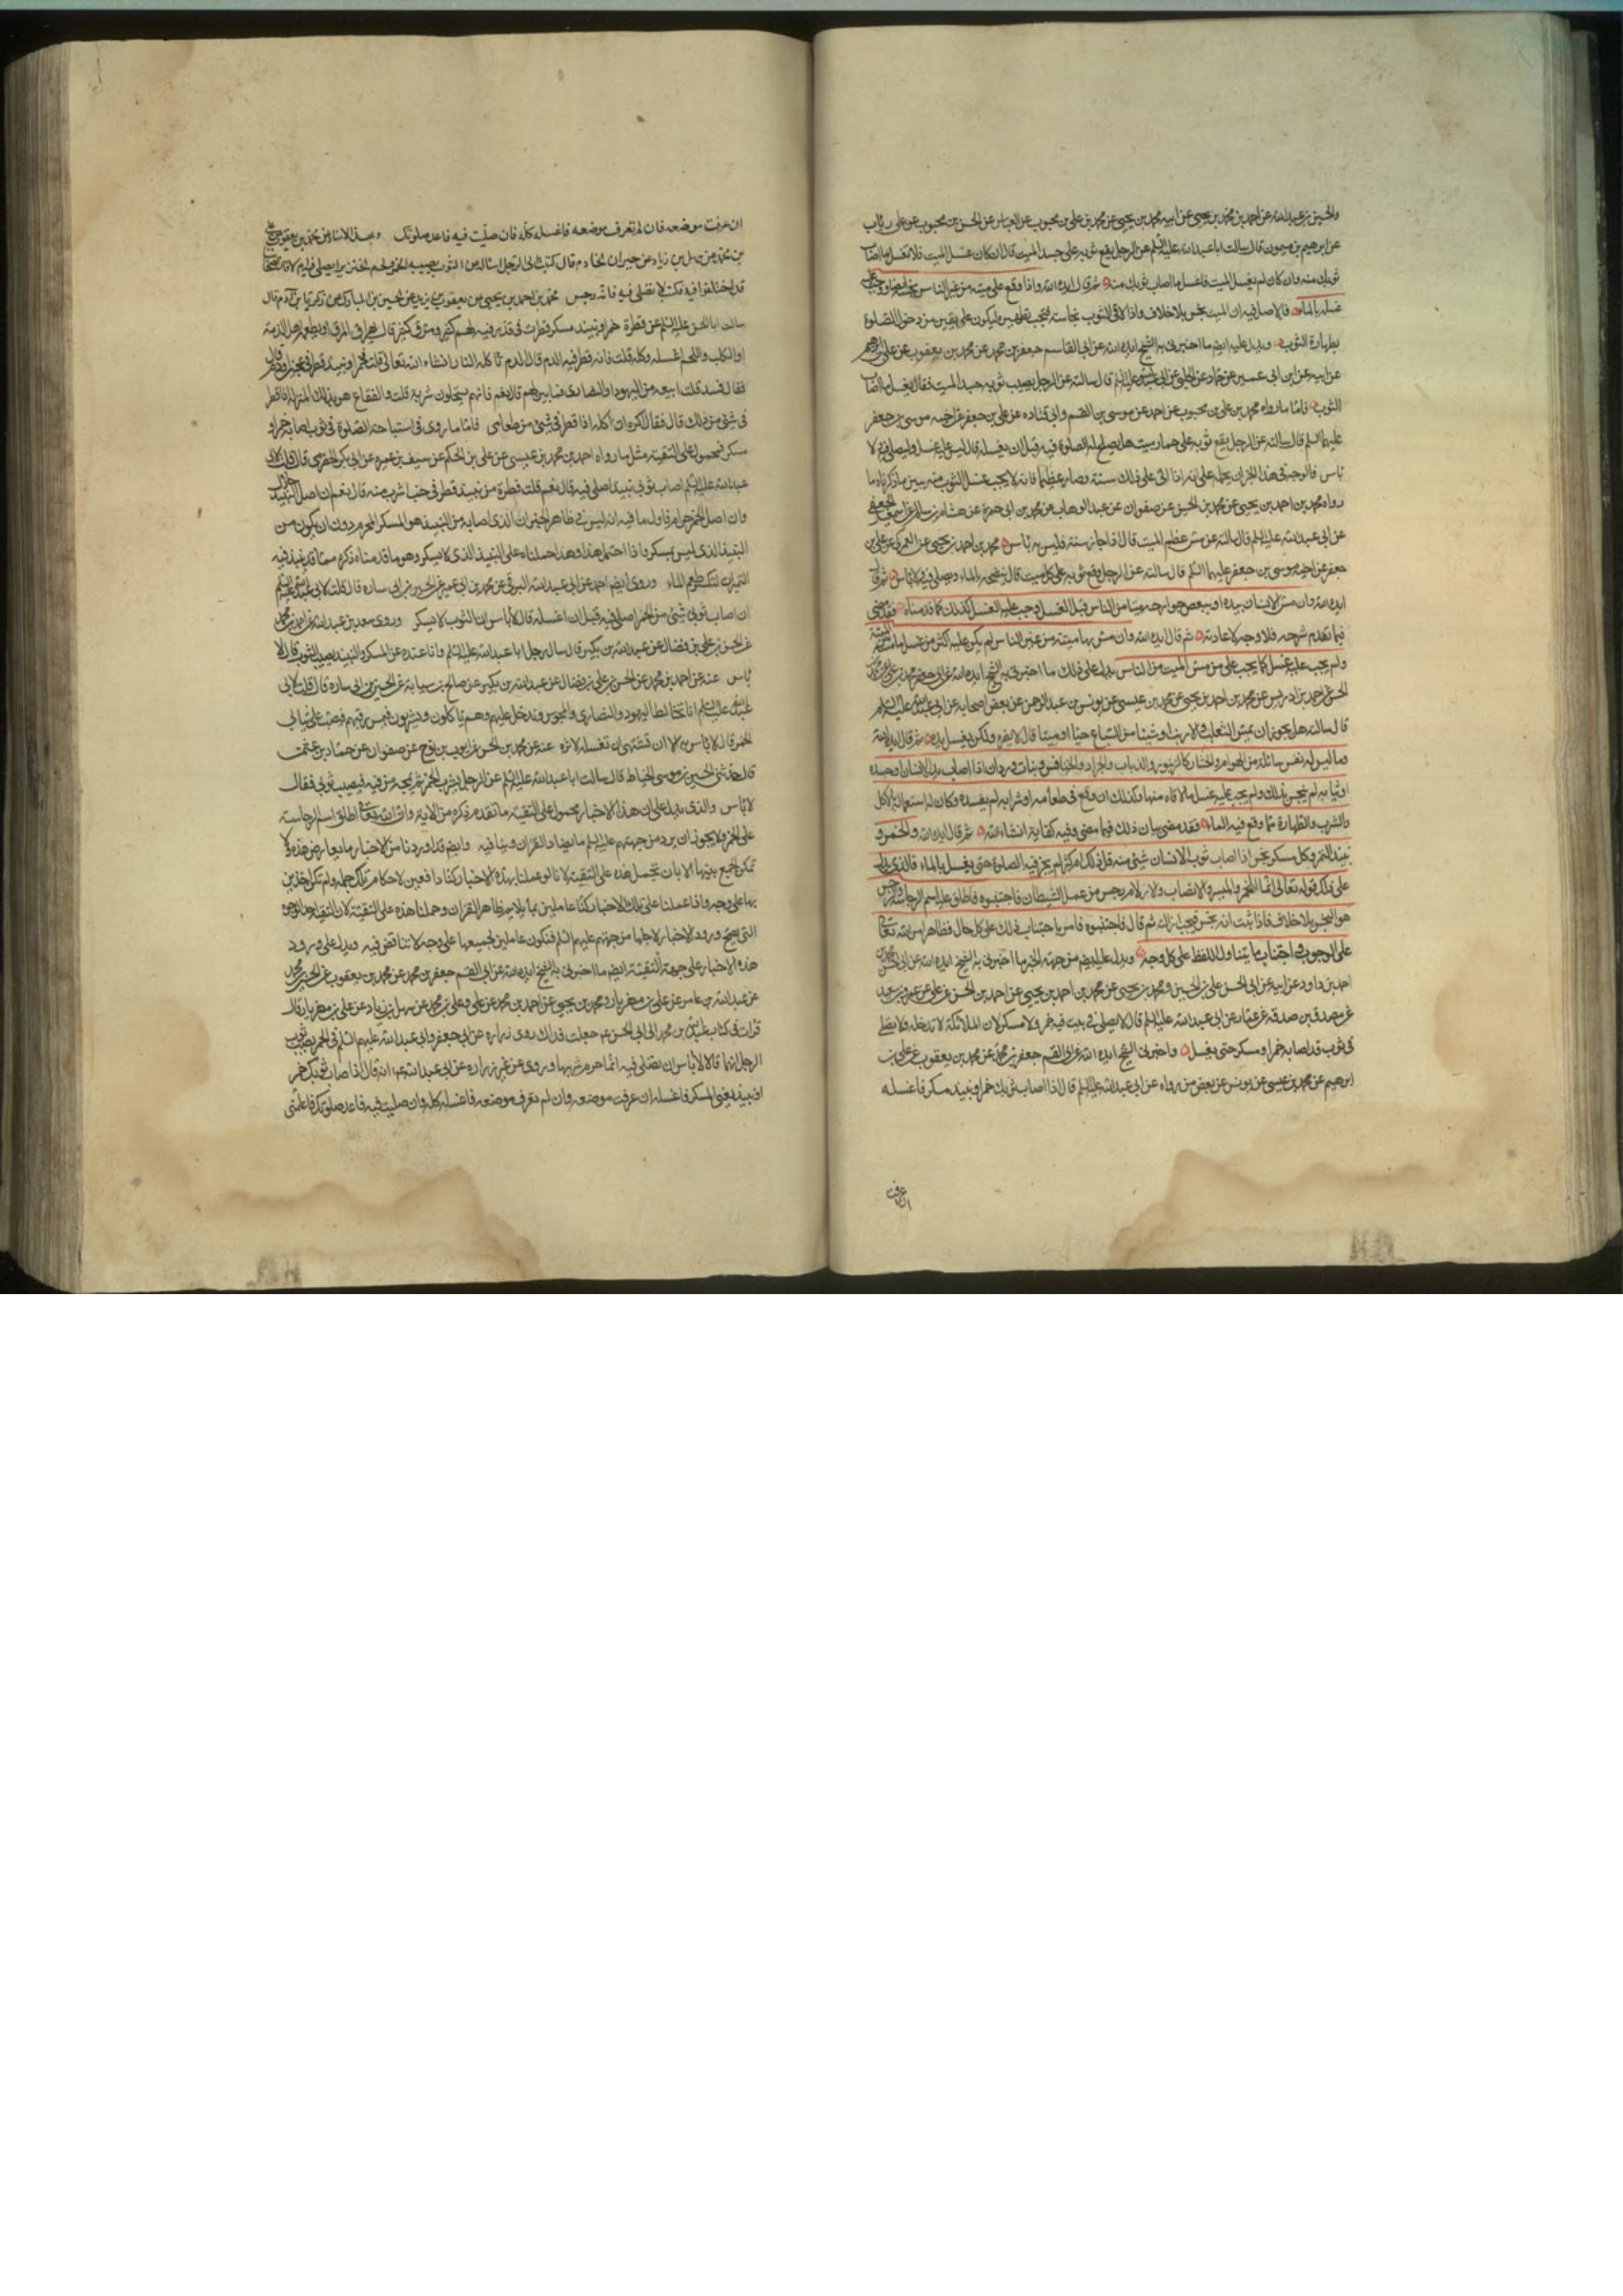 والحسين بن عبيد الله عن احمد بن محمد بن يحيى عن ابيه محمد بن يحيى عن محمد بن علي بن محبوب عن العباس عن الحسن بن محبوب عن علي بن رئاب
عن ابرهيم بن ميمون قال سالت ابا عبد الله عليه السلم عن الرجل يقع ثوبه على جسد الميت قال ان كان غسل الميت فلا تغسل ما اصاب
ثوبك منه وان كان لم يغسل الميت فاغسل ما اصاب ثوبك منه ثم قال ايده الله واذا وقع على ميتة من غير الناس نجسه ايضا ووجب عليه
غسله بالماء فالاصل فيه ان الميت نجس بلا خلاف واذا لاقى الثوب نجاسة فيجب تطهيره ليكون على يقين من دخول الصلوة
بطهارة الثوب ويدل عليه ايضا ما اخبرني به الشيخ ايده الله عن ابي القاسم جعفر بن محمد عن محمد بن يعقوب عن علي بن ابرهيم
عن ابيه عن ابن ابي عمير عن حماد عن الحلبي عن ابي عبد الله عليه السلم قال سالته عن الرجل يصيب ثوبه جسد الميت فقال يغسل ما اصاب
الثوب فاما ما رواه محمد بن علي بن محبوب عن احمد عن موسى بن القسم وابي قتاده عن علي بن جعفر عن اخيه موسى بن جعفر
عليهما السلم قال سالته عن الرجل يقع ثوبه على حمار ميت هل يصلح له الصلوة فيه قبل ان يغسله قال ليس عليه غسله وليصل فيه ولا
باس فالوجه في هذا الخبر ان نحمله على انه اذا اتى على ذلك سنة وصار عظما فانه لا يجب غسل الثوب منه يبين ما ذكرناه ما
رواه محمد بن احمد بن يحيى عن محمد بن الحسين عن صفوان عن عبد الوهاب عن محمد بن ابي حمزة عن هشام بن سالم عن اسمعيل الجعفي
عن ابي عبد الله عليه السلم قال سالته عن مس عظم الميت قال اذا جاز سنة فليس به باس محمد بن احمد بن يحيى عن العمركي عن علي بن
جعفر عن اخيه موسى بن جعفر عليهما السلم قال سالته عن الرجل وقع ثوبه على كلب ميت قال ينضحه بالماء ويصلي فيه ولا باس ثم قال
ايده الله وان مس الانسان بيده او ببعض جوارحه ميتا من الناس قبل الغسل وجب عليه الغسل لذلك كما قدمناه فقد مضى
فيما تقدم شرحه فلا وجه لاعادته ثم قال ايده الله وان مس بها ميتة من غير الناس لم يكن عليه اكثر من غسل ما مس الميتة
ولم يجب عليه غسل كما يجب على من مس الميت من الناس يدل على ذلك ما اخبرني به الشيخ ايده الله عن ابي جعفر محمد بن علي
قال سالته هل يجوز ان يمس الثعلب والارنب او شيئا من السباع حيا او ميتا قال لا يضره ولكن يغسل يده ثم قال ايده الله
وما ليس له نفس سائلة من الهوام والحشار كالزنبور والذباب والجراد والخنافس وبنات وردان اذا اصاب يد الانسان او جسده
او ثيابه لم ينجس بذلك ولم يجب عليه غسل ما لاقاه منها وكذلك ان وقع في طعامه او شرابه لم يفسده وكان له استعماله بالاكل
والشرب والطهارة مما وقع فيه الماء فقد مضى بيان ذلك فيما مضى وفيه كفاية انشاء الله ثم قال ايده الله والخمر و
نبيذ التمر وكل مسكر نجس اذا اصاب ثوب الانسان شيء منه قل ذلك ام كثر لم يجز فيه الصلوة حتى يغسل بالماء فالذي يدل
على ذلك قوله تعالى انما الخمر والميسر والانصاب والازلام رجس من عمل الشيطان فاجتنبوه فاطلق عليه اسم الرجاسة والرجس
هو النجس بلا خلاف فاذا ثبت انه نجس فيجب ازالته ثم قال فاجتنبوه فامر باجتناب ذلك على كل حال فظاهر امر الله تعالى
على الوجوب في اجتناب ما يتناوله اللفظ على كل وجه ويدل عليه ايضا من جهة الخبر ما اخبرني به الشيخ ايده الله عن ابي الحسن
احمد بن داود عن ابيه عن ابي الحسن علي بن الحسين ومحمد بن يحيى عن محمد بن احمد بن يحيى عن احمد بن الحسن بن علي عن عمرو بن سعيد
عن مصدق بن صدقة عن عمار عن ابي عبد الله عليه السلم قال لا يصلى في بيت فيه خمر ولا مسكر لان الملائكة لا تدخله ولا يصلى
في ثوب قد اصابه خمر او مسكر حتى يغسل واخبرني الشيخ ايده الله عن ابي القسم جعفر بن محمد عن محمد بن يعقوب عن علي بن
ابرهيم عن محمد بن عيسى عن يونس عن بعض من رواه عن ابي عبد الله عليه السلم قال اذا اصاب ثوبك خمر او نبيذ مسكر فاغسله
ان عرفت
ان عرفت موضعه فان لم تعرف موضعه فاغسله كله فان صليت فيه فاعد صلوتك وبهذا الاسناد عن محمد بن يعقوب عن علي
بن محمد عن سهل بن زياد عن خيران الخادم قال كتبت الى الرجل اساله عن الثوب يصيبه الخمر ولحم الخنزير ايصلى فيه ام لا فان اصحابنا
قد اختلفوا فيه فكتب لا تصلي فيه فانه رجس محمد بن احمد بن يحيى عن يعقوب بن يزيد عن الحسن بن المبارك عن زكريا بن آدم قال
سالت ابا الحسن عليه السلم عن قطرة خمر او نبيذ مسكر قطرت في قدر فيه لحم كثير ومرق كثير قال يهراق المرق او يطعمه اهل الذمة
او الكلب واللحم اغسله وكله قلت فانه قطر فيه الدم قال الدم تاكله النار انشاء الله تعالى قلت فخمر او نبيذ قطر في عجين او دم قال
فقال فسد قلت ابيعه من اليهود والنصارى وابين لهم قال نعم فانهم يستحلون شربه قلت والفقاع هو بتلك المنزلة اذا قطر
في شيء من ذلك قال فقال اكره ان اكله اذا قطر في شيء من طعامي فاما ما روى في استباحة الصلوة في ثوب اصابه خمر او
مسكر فمحمول على التقية مثل ما رواه احمد بن محمد بن عيسى عن علي بن الحكم عن سيف بن عميره عن ابي بكر الحضرمي قال قلت لابي
عبد الله عليه السلم اصاب ثوبي نبيذ اصلي فيه قال نعم قلت قطرة من نبيذ قطر في حب اشرب منه قال نعم ان اصل النبيذ حلال
وان اصل الخمر حرام فاول ما فيه انه ليس في ظاهر الخبر ان الذي اصابه من النبيذ هو المسكر المحرم دون ان يكون من
النبيذ الذي ليس بمسكر واذا احتمل هذا وهذا حملناه على النبيذ الذي لا يسكر وهو ما قدمناه ذكره مما قد نبذ فيه
التميرات لتكسر طعم الماء وروى ايضا احمد عن ابي عبد الله البرقي عن محمد بن ابي عمير عن الحسين بن ابي ساره قال قلت لابي عبد الله عليه السلم
ان اصاب ثوبي شيء من الخمر اصلي فيه قبل ان اغسله قال لا باس ان الثوب لا يسكر وروى سعد بن عبد الله عن احمد بن محمد
عن الحسن بن علي بن فضال عن عبد الله بن بكير قال سال رجل ابا عبد الله عليه السلم وانا عنده عن المسكر والنبيذ يصيب الثوب قال لا
باس عنه عن احمد بن محمد عن الحسن بن علي بن فضال عن عبد الله بن بكير عن صالح بن سيابة عن الحسين بن ابي ساره قال قلت لابي
عبد الله عليه السلم انا نخالط اليهود والنصارى والمجوس وندخل عليهم وهم ياكلون ويشربون فيمر ساقيهم فيصب على ثيابي
الخمر قال لا باس به الا ان تشتهي ان تغسله لاثره عنه عن محمد بن الحسين عن ايوب بن نوح عن صفوان عن حماد بن عثمان
قال حدثني الحسين بن موسى الحناط قال سالت ابا عبد الله عليه السلم عن الرجل يشرب الخمر ثم يمجه من فيه فيصيب ثوبي فقال
لا باس والذي يدل على ان هذه الاخبار محمولة على التقية ما تقدم ذكره من الاية وان الله تعالى اطلق اسم الرجاسة
على الخمر ولا يجوز ان يرد من جهتهم عليهم السلم ما يضاد القران وينافيه وايضا قد اوردنا من الاخبار ما يعارض هذه ولا
يمكن الجمع بينها الا بان نحمل هذه على التقية لانا لو عملنا بهذه الاخبار كنا دافعين لاحكام تلك جملة ولم نكن اخذين
بها على وجه واذا عملنا على تلك الاخبار كنا عاملين بما يلايم ظاهر القران وحملنا هذه على التقية لان التقية احد الوجوه
التي يصح ورود الاخبار لاجلها من جهتهم عليهم السلم فنكون عاملين بجميعها على وجه لا تناقض فيه ويدل على ورود
هذه الاخبار على جهة التقية ايضا ما اخبرني به الشيخ ايده الله عن ابي القسم جعفر بن محمد عن محمد بن يعقوب عن الحسين بن محمد
عن عبد الله بن عامر عن علي بن مهزيار ومحمد بن يحيى عن احمد بن محمد عن علي وعلي بن محمد عن سهل بن زياد عن علي بن مهزيار قال
قرات في كتاب عبد الله بن محمد الى ابي الحسن ع جعلت فداك روى زراره عن ابي جعفر وابي عبد الله عليهم السلم في الخمر يصيب ثوب
الرجل انهما قالا لا باس ان يصلى فيه انما حرم شربها وروى عن غير زراره عن ابي عبد الله ع انه قال اذا اصاب ثوبك خمر
او نبيذ يعني المسكر فاغسله ان عرفت موضعه وان لم تعرف موضعه فاغسله كله وان صليت فيه فاعد صلوتك فاعلمني